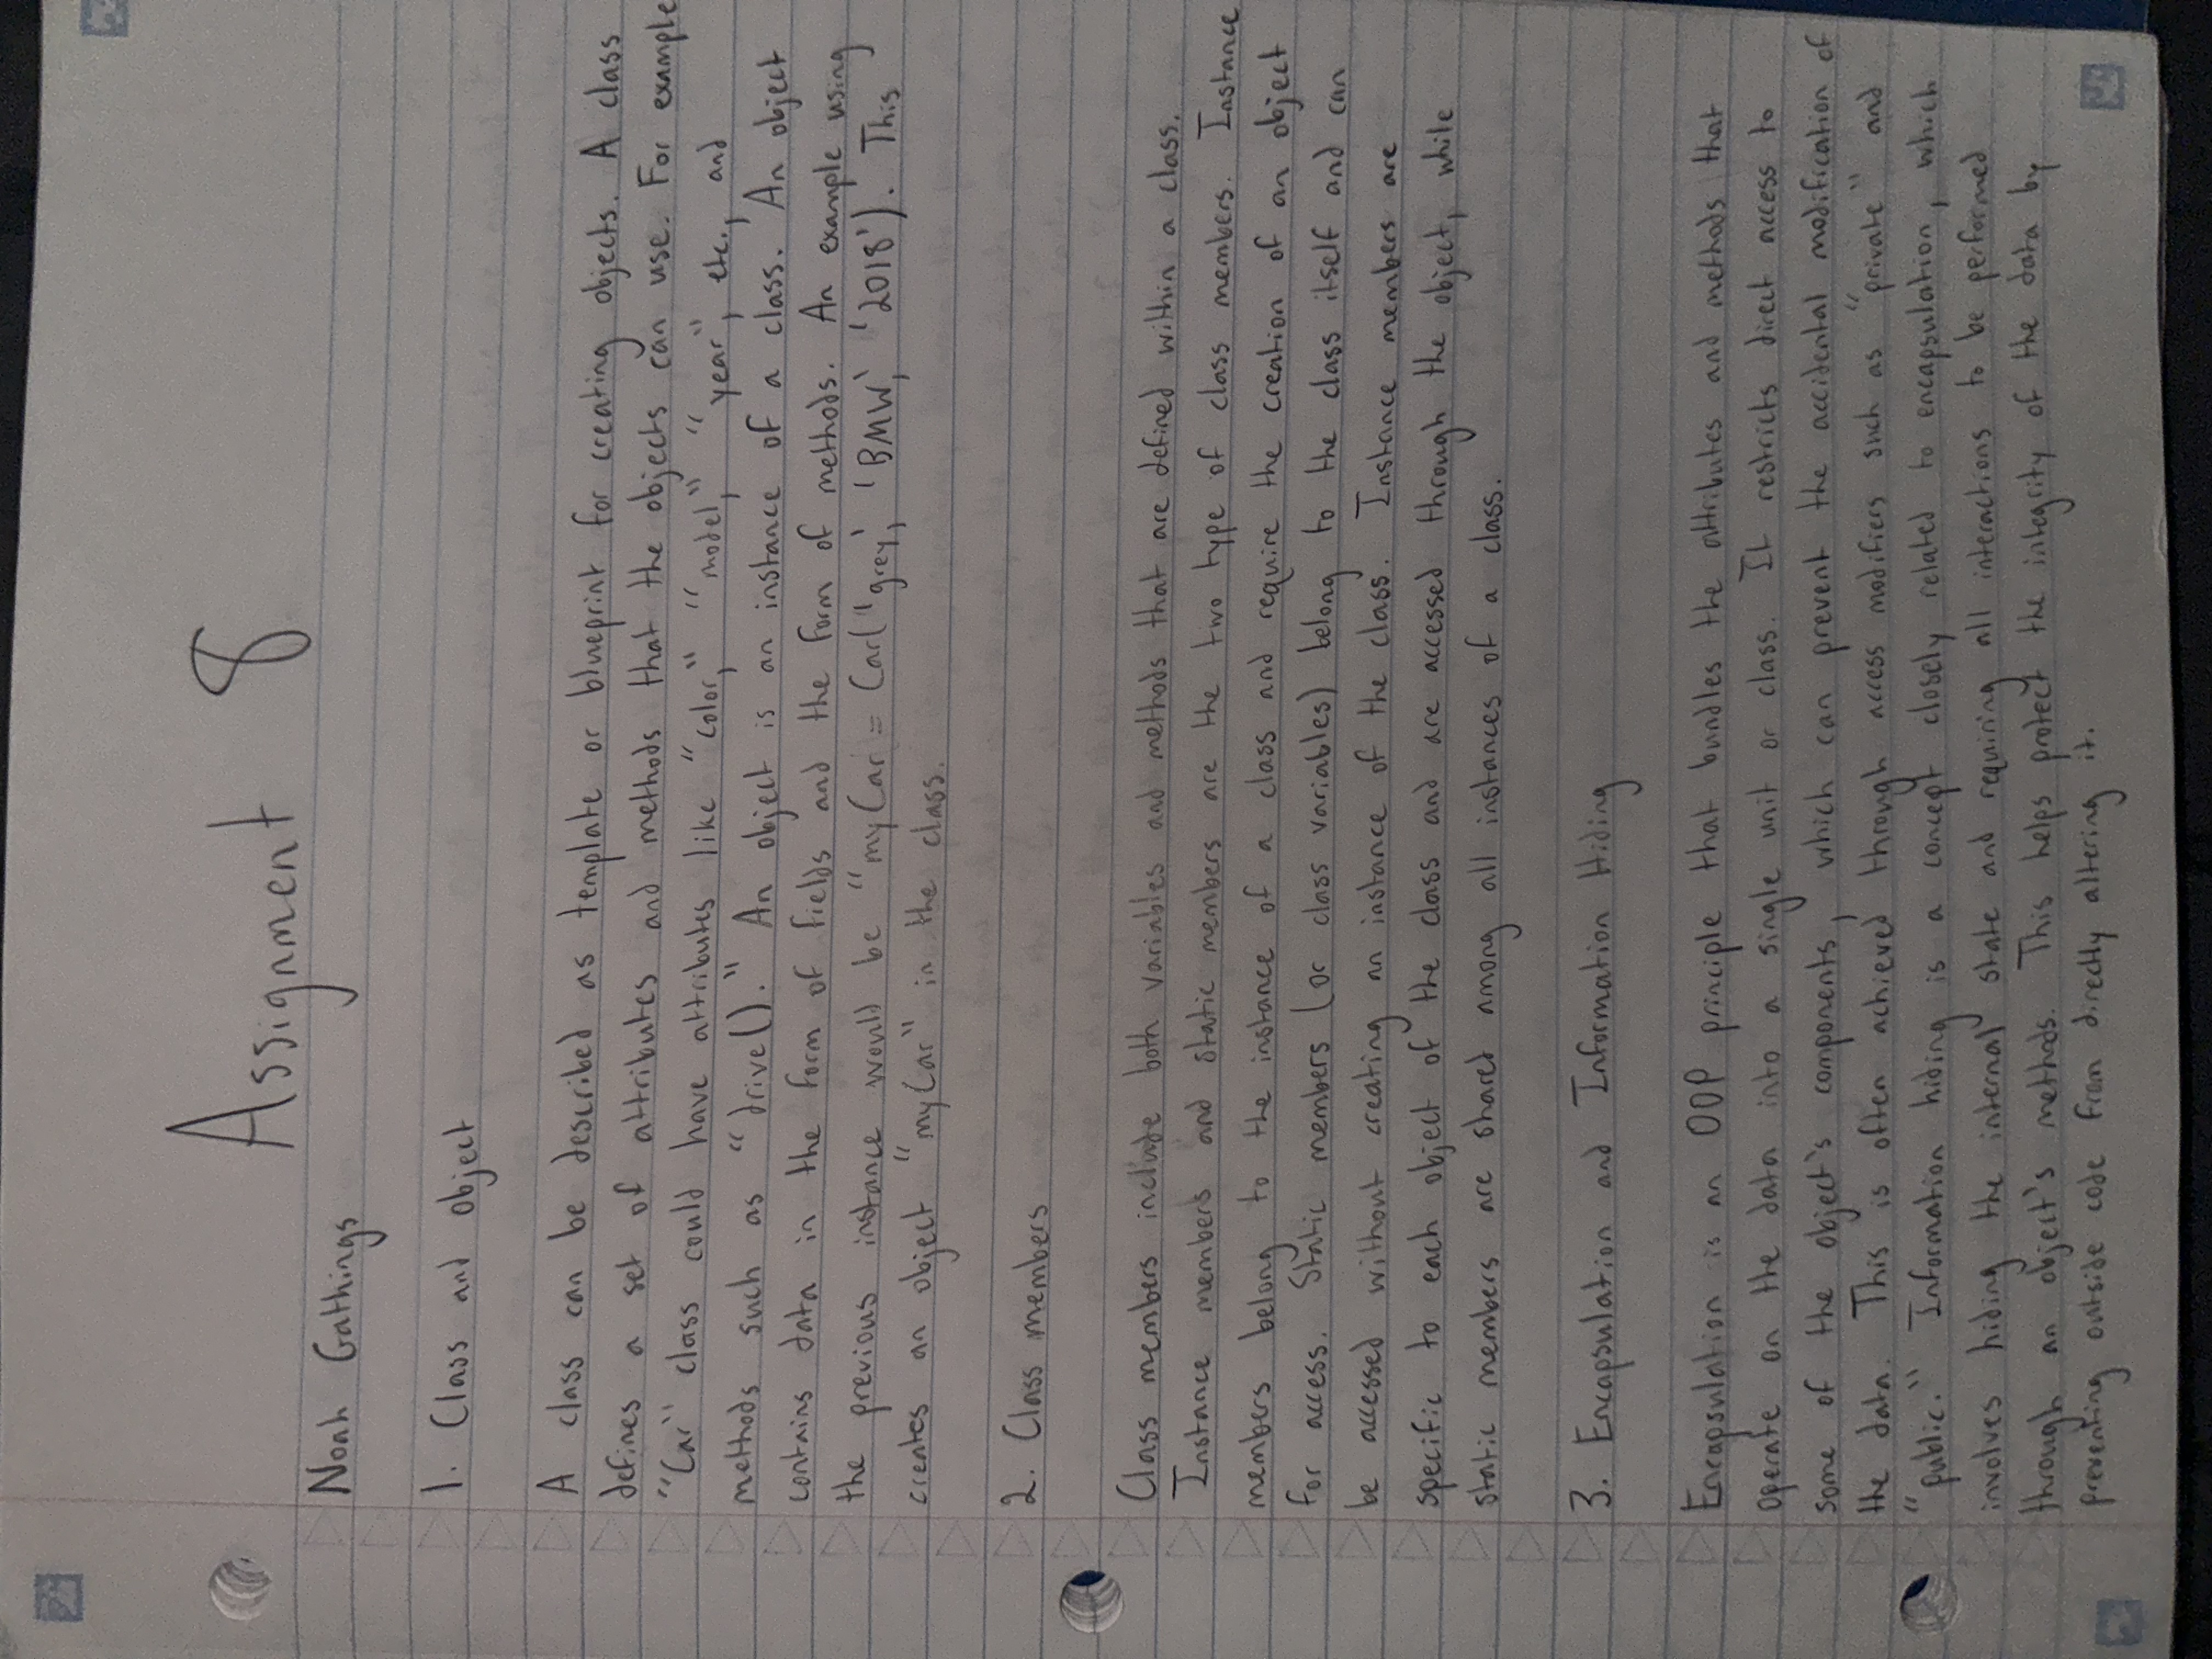 Assignment 8
Noah Gathings
1. Class and object
A class can be described as template or blueprint for creating objects. A class
defines a set of attributes and methods that the objects can use. For example
"Car" class could have attributes like "color," "model," "year", etc., and
methods such as "drive()." An object is an instance of a class. An object
contains data in the form of fields and the form of methods. An example using
the previous instance would be "myCar = Car('grey', 'BMW', '2018'). This
creates an object "myCar" in the class.
2. Class members
Class members include both variables and methods that are defined within a class.
Instance members and static members are the two type of class members. Instance
members belong to the instance of a class and require the creation of an object
for access. Static members (or class variables) belong to the class itself and can
be accessed without creating an instance of the class. Instance members are
specific to each object of the class and are accessed through the object, while
static members are shared among all instances of a class.
3. Encapsulation and Information Hiding
Encapsulation is an OOP principle that bundles the attributes and methods that
operate on the data into a single unit or class. It restricts direct access to
some of the object's components, which can prevent the accidental modification of
the data. This is often achieved through access modifiers such as "private" and
"public." Information hiding is a concept closely related to encapsulation, which
involves hiding the internal state and requiring all interactions to be performed
through an object's methods. This helps protect the integrity of the data by
preventing outside code from directly altering it.